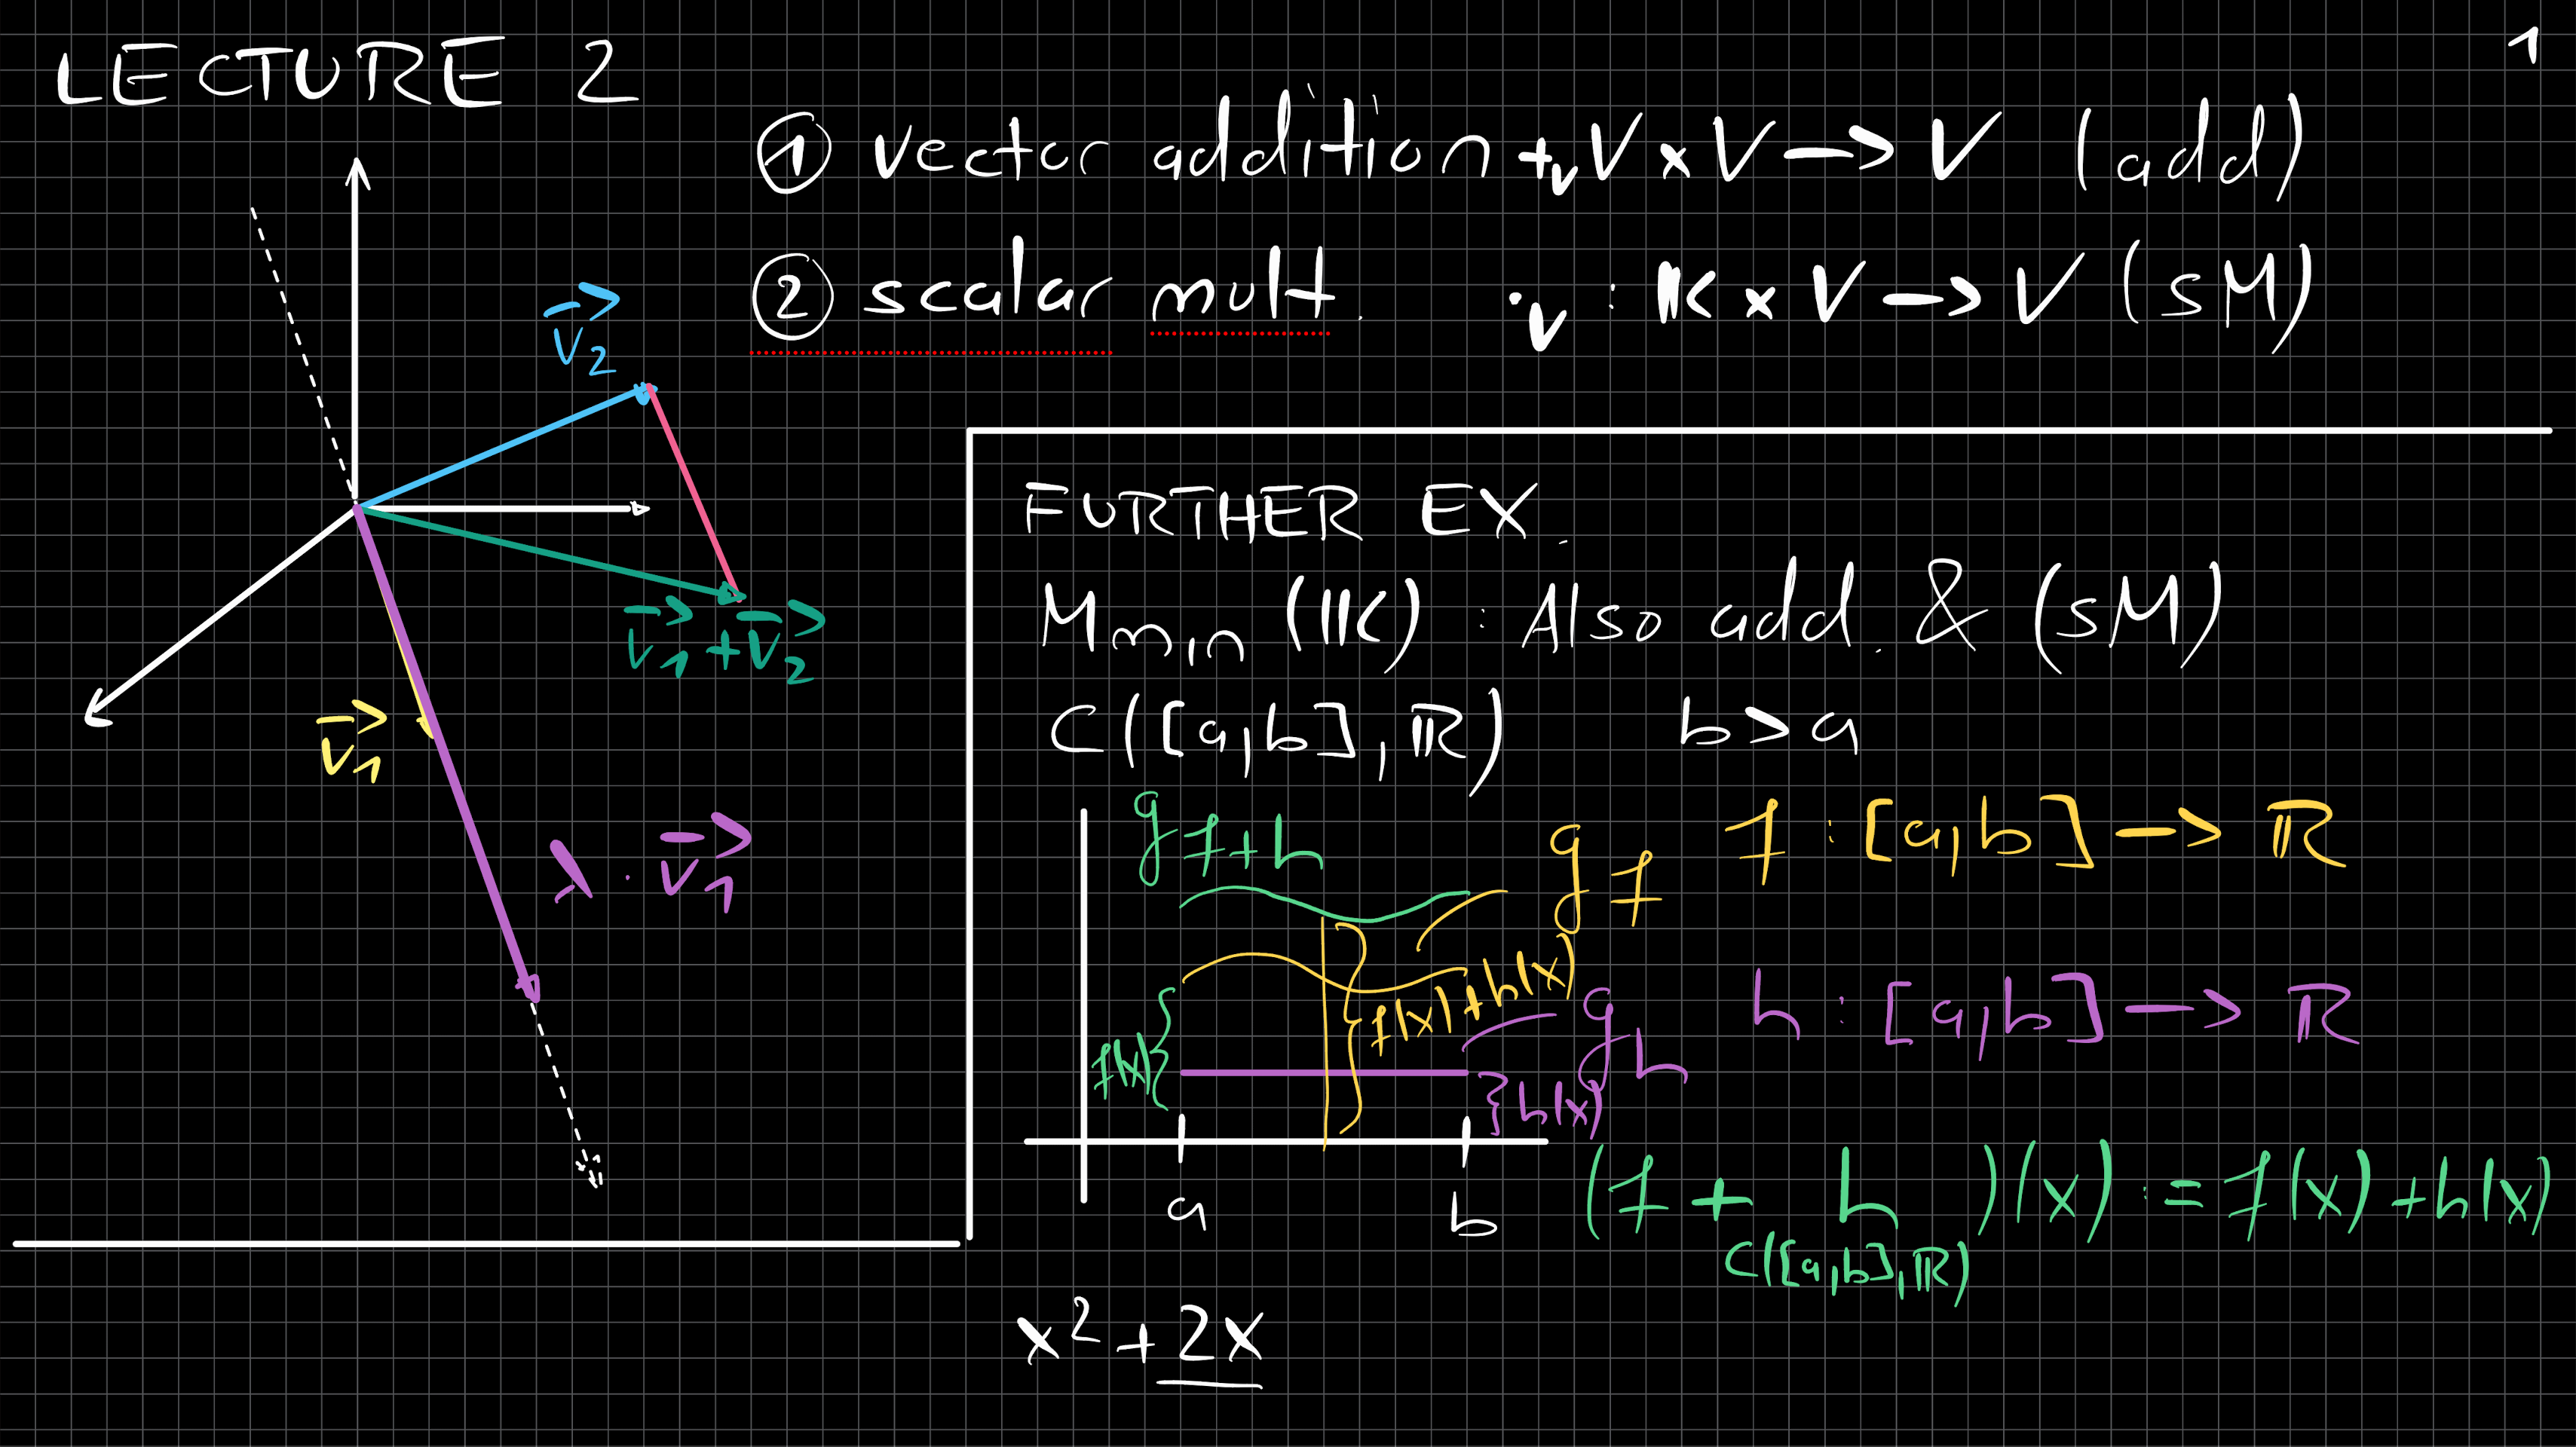 LECTURE 2
1
① vector addition +ᵥ V × V → V (add)
② scalar mult. ·ᵥ : 𝕂 × V → V (sM)
v⃗₂
v⃗₁+v⃗₂
v⃗₁
λ · v⃗₁
FURTHER EX.
Mₘ,ₙ (𝕂) : Also add. & (sM)
C([a,b],ℝ) b>a
g f+h
g f
f : [a,b] → ℝ
f(x)+h(x)
f(x)
g h
h : [a,b] → ℝ
h(x)
a b
(f + h)(x) := f(x)+h(x)
C([a,b],ℝ)
x²+2x